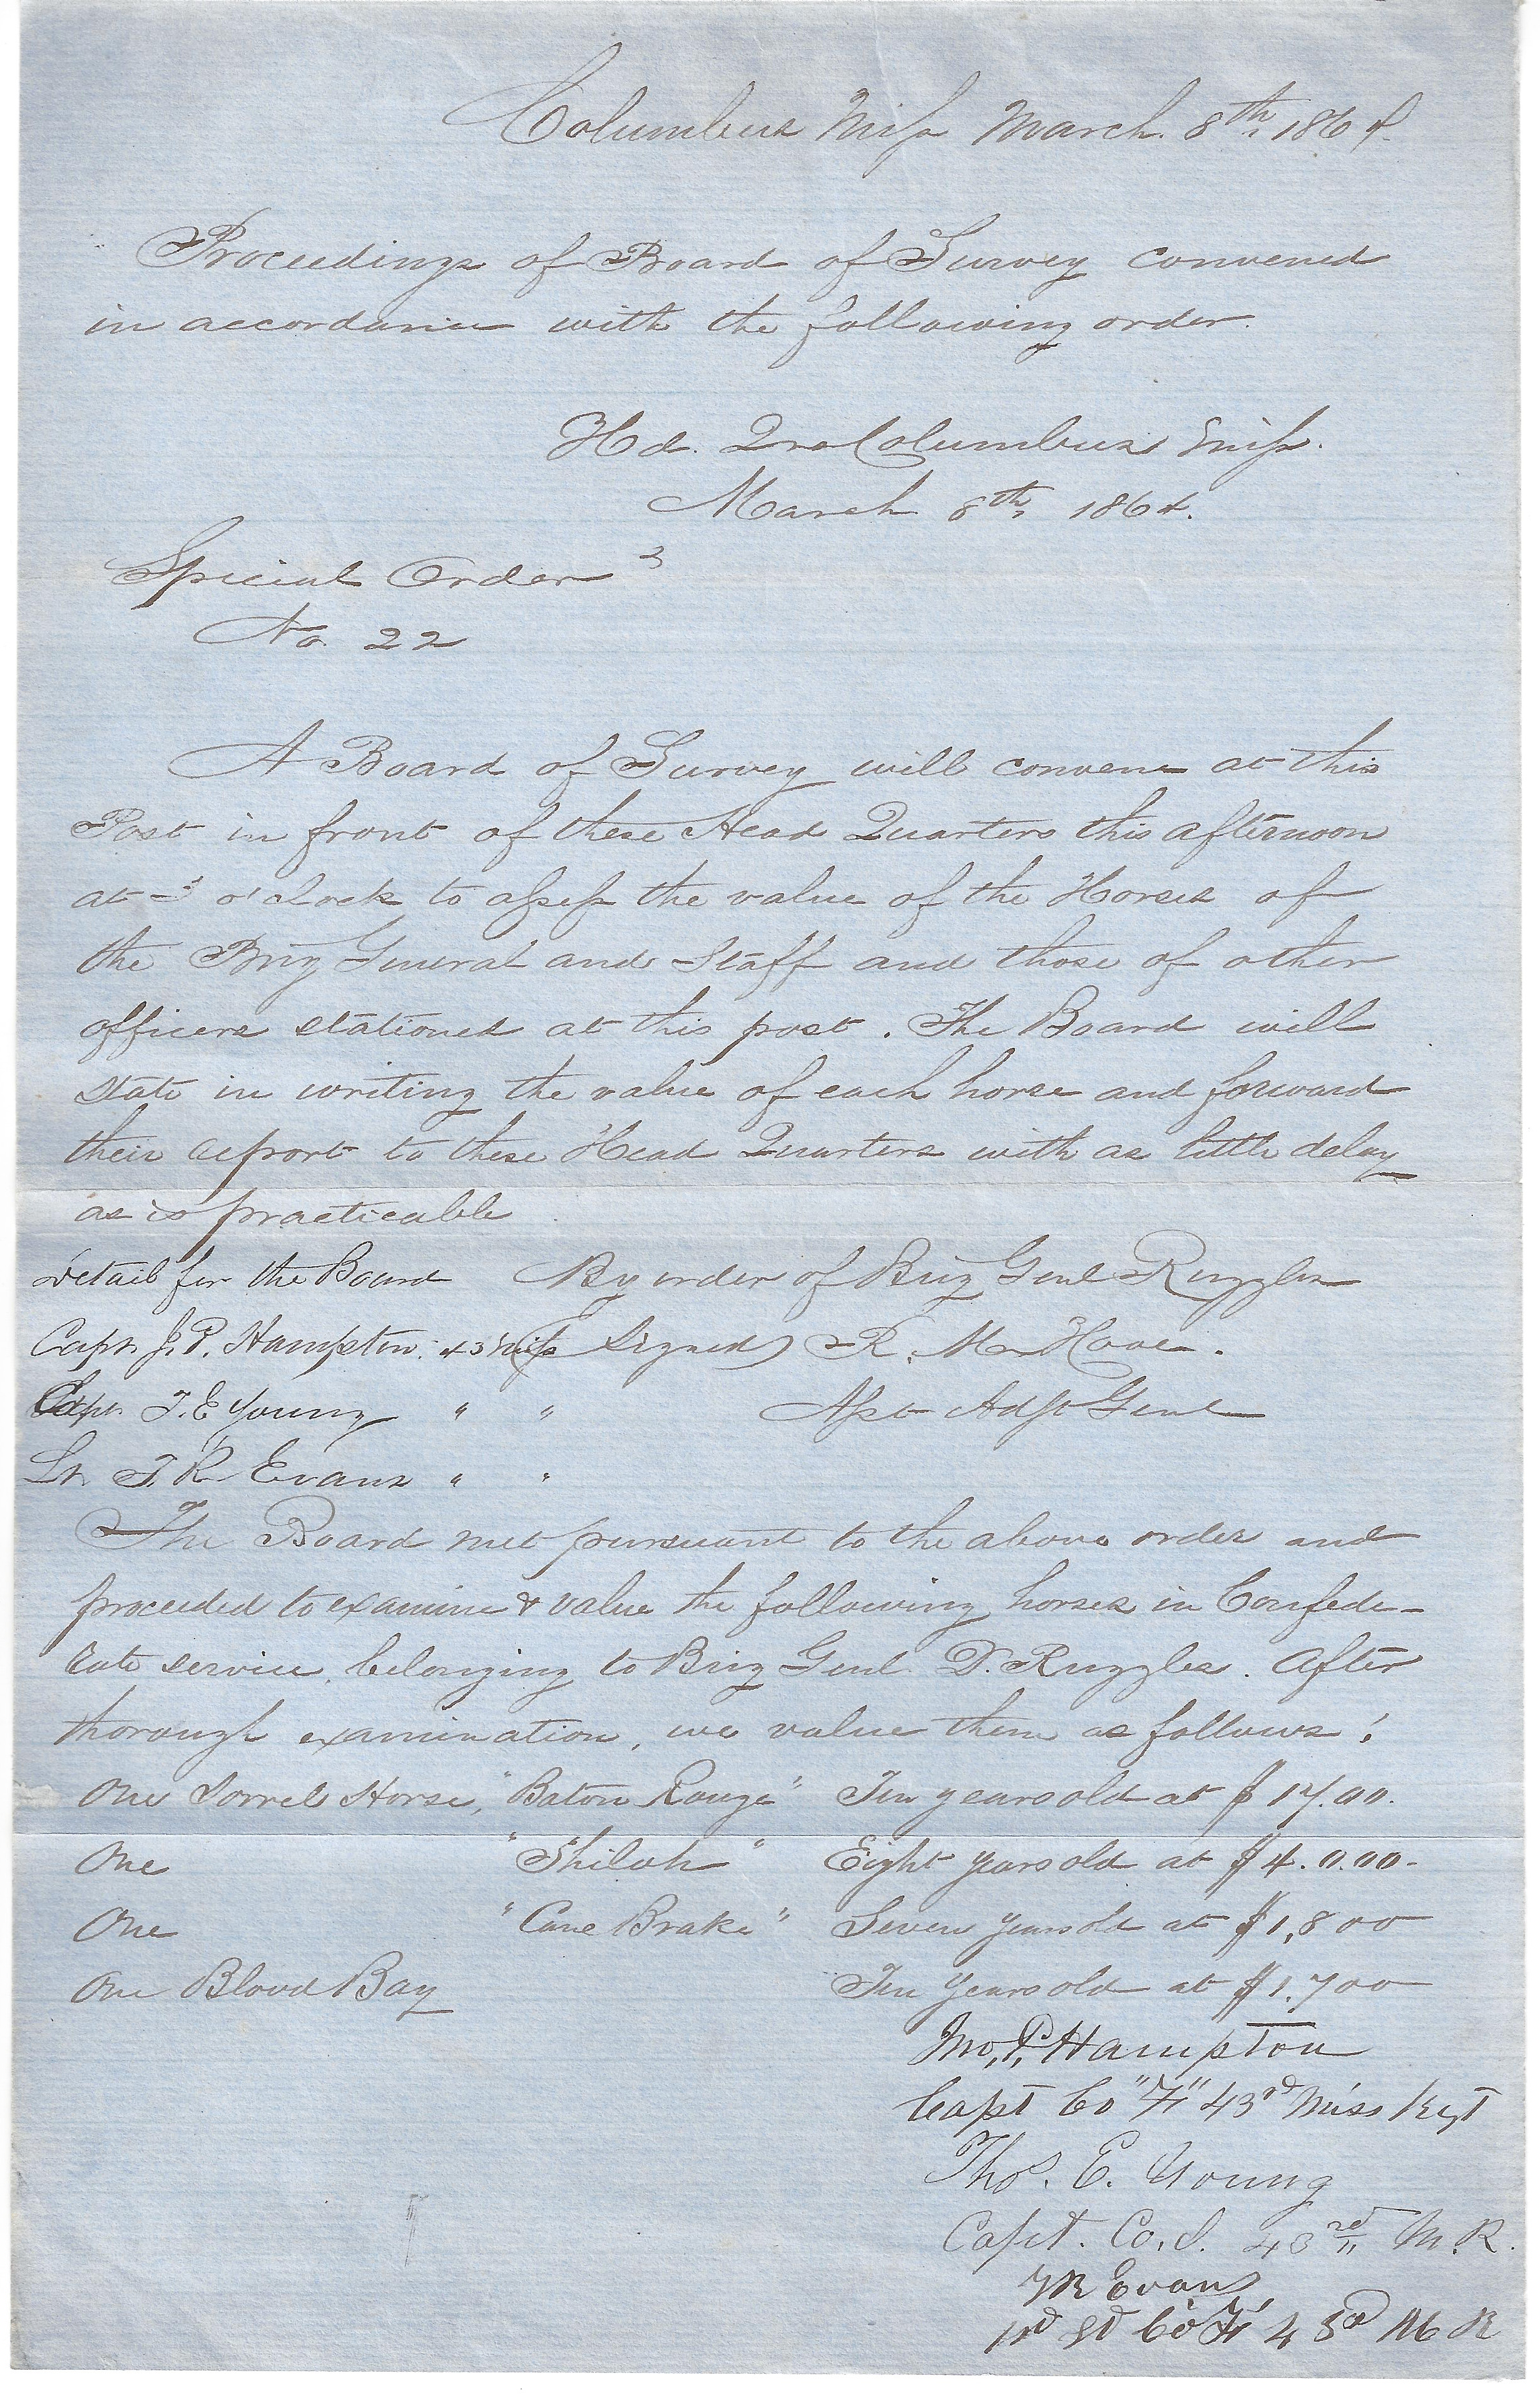 Columbus Miss March. 8th, 1864.
Proceedings of Board of Survey convened
in accordance with the following order.
Hd. Qrs Columbus Miss.
March 8th, 1864.
Special Order
No. 22
A Board of Survey will convene at this
Post in front of these Head Quarters this afternoon
at 3 o'clock to assess the value of the Horses of
the Brig General and Staff and those of other
officers stationed at this post. The Board will
state in writing the value of each horse and forward
their report to these Head Quarters with as little delay
as is practicable
Detail for the Board By order of Brig Genl Ruggles
Capt. J. P. Hampton. 43 Miss (Signed) R. M. Hooe.
Capt. T. E Young " " Asst Adjt Genl
Lt. T. R Evans " "
The Board met pursuant to the above order and
proceeded to examine & value the following horses in Confede-
rate service, belonging to Brig Genl. D. Ruggles. After
thorough examination, we value them as follows:
One Sorrel Horse, "Baton Rouge" Ten years old at $17.00.
One "Shiloh" Eight years old at $4.0.00-
One "Cane Brake" Seven years old at $1,800
One Blood Bay Ten years old at $1,700
Jno. P. Hampton
Capt Co "F" 43rd Miss Regt
Thos. E. Young
Capt. Co. I. 43rd M. R.
T R Evans
Lt Co F 43rd M R